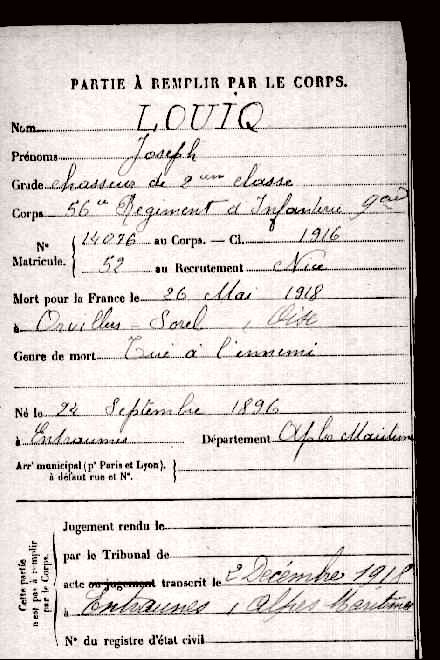 PARTIE À REMPLIR PAR LE CORPS.
Nom LOUIQ
Prénoms Joseph
Grade chasseur de 2eme classe
Corps 56e Régiment d'Infanterie
N° Matricule. 14026 au Corps. — Cl. 1916
52 au Recrutement Nice
Mort pour la France le 26 Mai 1918
à Orvillers-Sorel, Oise
Genre de mort Tué à l'ennemi
Né le 24 Septembre 1896
à Entraunes Département Alpes Maritimes
Arr' municipal (p' Paris et Lyon), à défaut rue et N°.
Cette partie n'est pas à remplir par le Corps.
Jugement rendu le
par le Tribunal de
acte ou jugement transcrit le 2 Décembre 1918
à Entraunes, Alpes Maritimes
N° du registre d'état civil